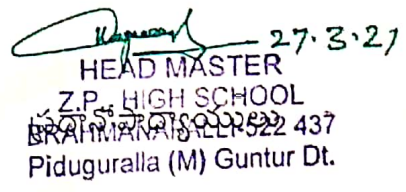 27.3.21
HEAD MASTER
Z.P. HIGH SCHOOL
ప్రధానోపాధ్యాయులు
BRAHMANAPALLI-522 437
Piduguralla (M) Guntur Dt.